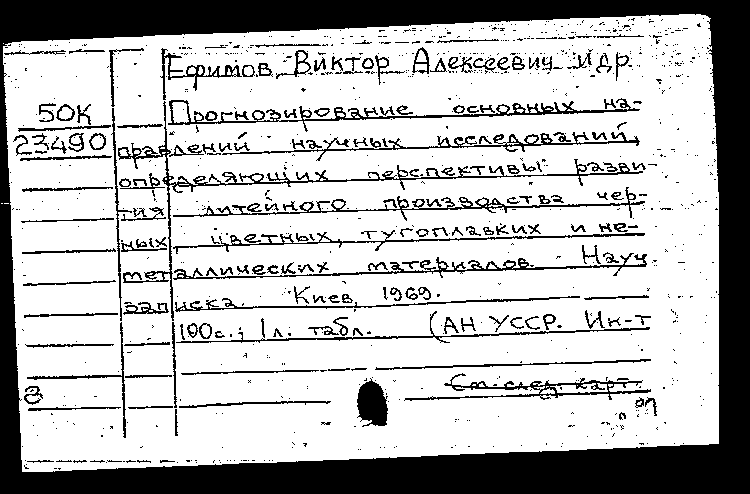 Ефимов, Виктор Алексеевич и др
50К
23490
Прогнозирование основных на-
правлений научных исследований,
определяющих перспективы разви-
тия литейного производства чер-
ных, цветных, тугоплавких и не-
металлических материалов. Науч.
записка. Киев, 1969.
100с.; 1л. табл. (АН УССР. Ин-т
См. след. карт.